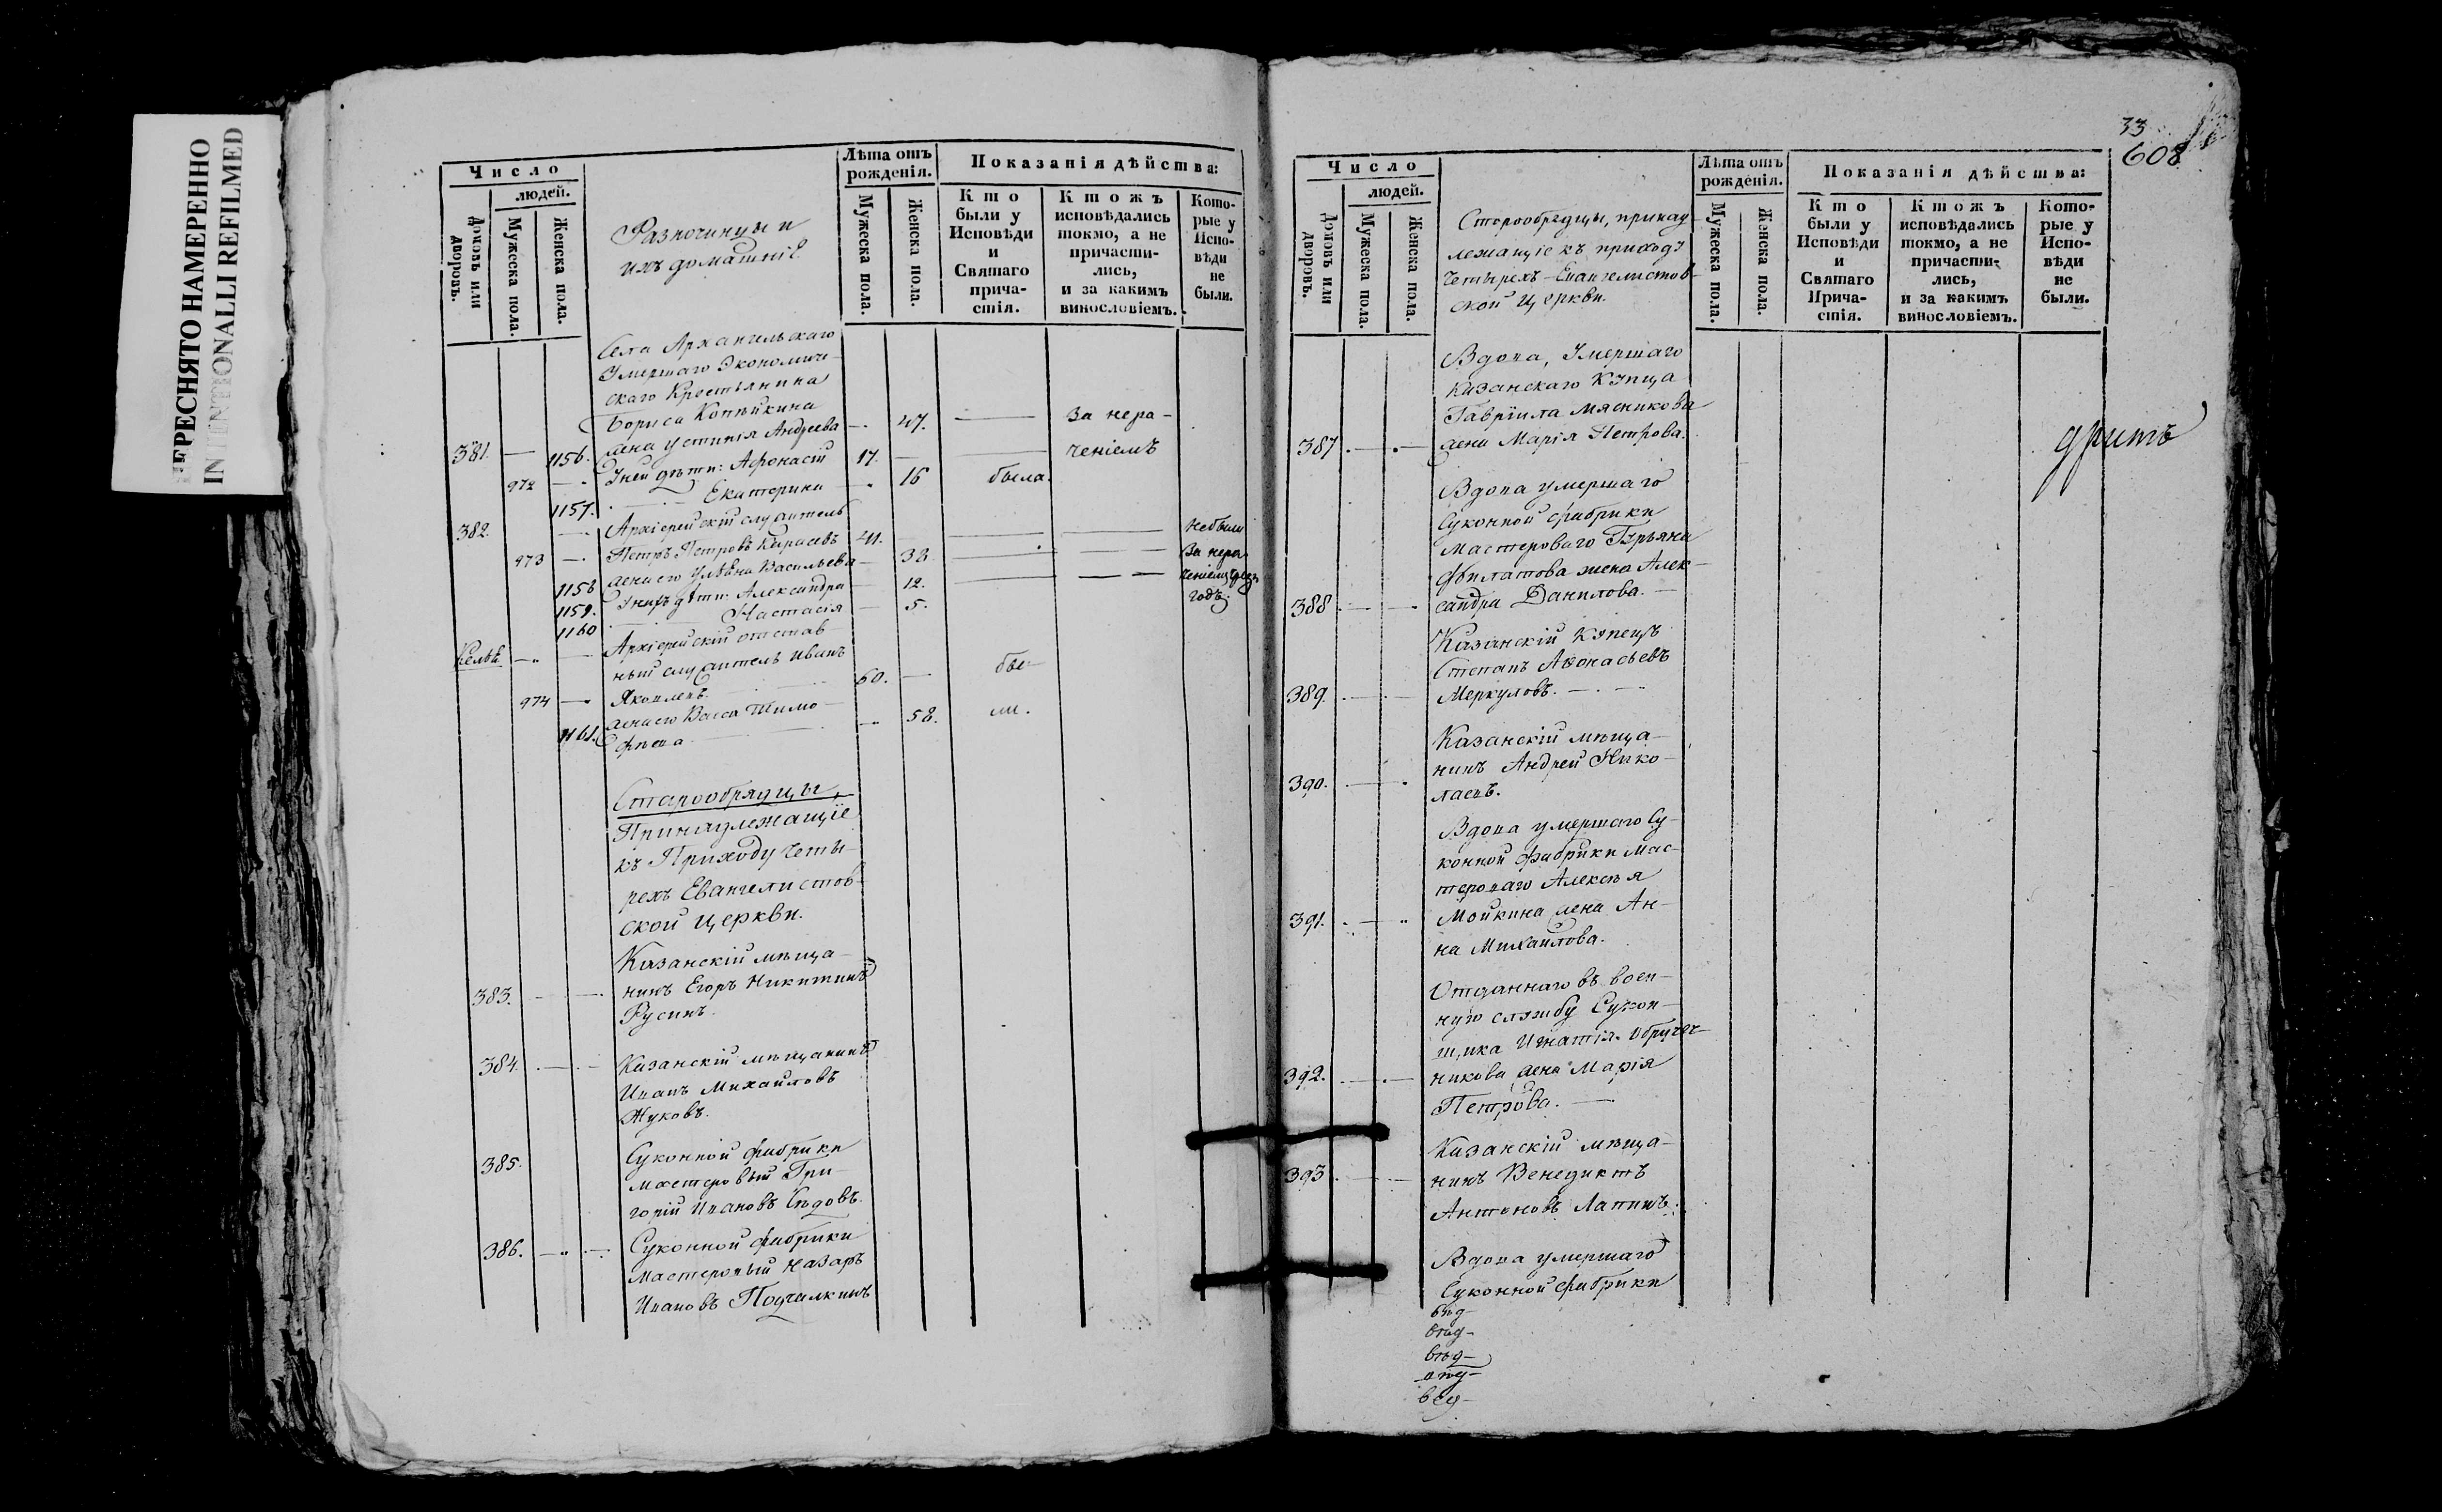 ПЕРЕСНЯТО НАМЕРЕННО
INTENTIONALLI REFILMED
Число
людей.
Домовъ или дворовъ.
Мужеска пола.
Женска пола.
Разночинцы и
ихъ домашніе
Лѣта отъ
рожденія.
Мужеска пола.
Женска пола.
Показанія дѣйства:
Кто
были у
Исповѣди
и
Святаго
прича-
стія.
Ктожъ
исповѣдались
токмо, а не
причасти-
лись,
и за какимъ
винословіемъ.
Кото-
рые у
Испо-
вѣди
не
были.
Села Архангельскаго
Умершаго Экономиче-
скаго Крестьянина
Бориса Копѣйкина
381. 1156. жена Устинія Андреева 47. За нера-
972 У ней дѣти: Афонасій 17. ченіемъ
1157. Екатерина 16 была.
382. Архіерейскій служитель
973 Петръ Петровъ Карасевъ 41. небыли
1158 жена его Ульяна Васильева 38 За нера-
1159. У нихъ дѣти: Александра 12. ченіемъ
1160 Настасія 5. годъ.
Архіерейскій отстав-
ный служитель Иванъ
974 Яковлевъ. 60. бы-
1161. жена его Васса Тимо- 58. ли.
фѣева
Старообрядцы,
Принадлежащіе
къ Приходу Четы-
рехъ Евангелистов-
ской Церкви.
Казанскій мѣща-
383. нинъ Егоръ Никитинъ
Русинъ.
384. Казанскій мѣщанинъ
Иванъ Михайловъ
Жуковъ.
385. Суконной фабрики
мастеровый Гри-
горій Ивановъ Сѣдовъ.
386. Суконной фабрики
мастеровый Назаръ
Ивановъ Подчалкинъ
33
608
Число
людей.
Домовъ или дворовъ.
Мужеска пола.
Женска пола.
Старообрядцы, принад
лежащіе къ приходу
Четырехъ-Евангелистов-
ской Церкви.
Лѣта отъ
рожденія.
Мужеска пола.
Женска пола.
Показанія дѣйства:
Кто
были у
Исповѣди
и
Святаго
Прича-
стія.
Ктожъ
исповѣдались
токмо, а не
причасти-
лись,
и за какимъ
винословіемъ.
Кото-
рые у
Испо-
вѣди
не
были.
Вдова, Умершаго
Казанскаго Купца
Гавріила Мясникова
387 жена Марія Петрова.
Вдова умершаго
Суконной фабрики
мастероваго Гурьяна
Филатова жена Алек-
388 сандра Данилова.
Казанскій Купецъ
Степанъ Афонасьевъ
389. Меркуловъ.
Казанскій мѣща-
390. нинъ Андрей Нико-
лаевъ.
Вдова умершаго Су-
конной фабрики мас-
тероваго Алексѣя
391. Мойкина жена Ан-
на Михайлова.
Отданнаго въ воен-
ную службу Сукон-
щика Игнатія Обручеч-
392. никова жена Марія
Петрова.
Казанскій мѣща-
393 нинъ Венедиктъ
Антоновъ Лапинъ.
Вдова умершаго
Суконной фабрики